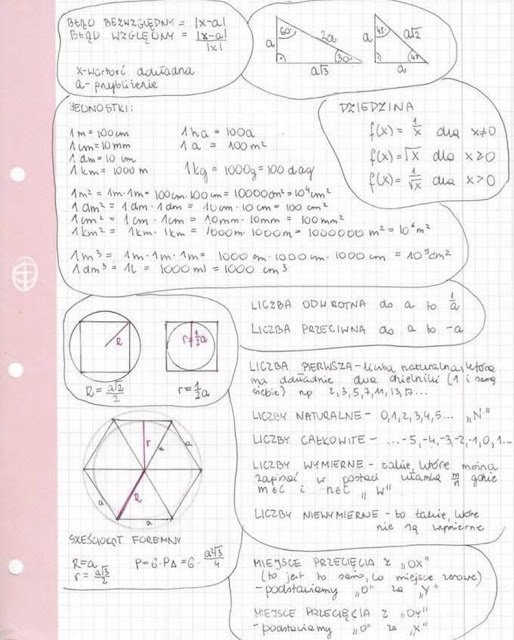 BŁĄD BEZWZGLĘDNY = |x-a|
BŁĄD WZGLĘDNY = |x-a|/|x|
x-wartość dokładna
a- przybliżenie
60° 2a a 30° a√3
45° a√2 a 45° a
JEDNOSTKI:
1m = 100cm 1ha = 100a
1cm = 10mm 1a = 100m²
1dm = 10cm
1km = 1000m 1kg = 1000g = 100dag
1m² = 1m·1m = 100cm·100cm = 10000cm² = 10⁴cm²
1dm² = 1dm·1dm = 10cm·10cm = 100cm²
1cm² = 1cm·1cm = 10mm·10mm = 100mm²
1km² = 1km·1km = 1000m·1000m = 1000000m² = 10⁶m²
1m³ = 1m·1m·1m = 1000cm·1000cm·1000cm = 10⁹cm²
1dm³ = 1l = 1000ml = 1000cm³
DZIEDZINA
f(x) = 1/x dla x≠0
f(x) = √x dla x≥0
f(x) = 1/√x dla x>0
R r=½a
R = a√2/2 r = ½a
LICZBA ODWROTNA do a to 1/a
LICZBA PRZECIWNA do a to -a
LICZBA PIERWSZA - liczba naturalna, która
ma dokładnie dwa dzielniki (1 i samą
siebie) np 2,3,5,7,11,13,17...
LICZBY NATURALNE - 0,1,2,3,4,5... „N"
LICZBY CAŁKOWITE - ...-5,-4,-3-2,-1,0,1...
LICZBY WYMIERNE - takie, które można
zapisać w postaci ułamka m/n gdzie
m∈C i n∈C „W"
LICZBY NIEWYMIERNE - to takie, które
nie są wymierne
r a a R a a
SZEŚCIOKĄT FOREMNY
R=a P=6·P∆ = 6·a²√3/4
r = a√3/2
MIEJSCE PRZECIĘCIA z „OX"
(to jest to samo, co miejsce zerowe)
- podstawiamy „0" za „Y"
MIEJSCE PRZECIĘCIA z „OY"
- podstawiamy „0" za „X"